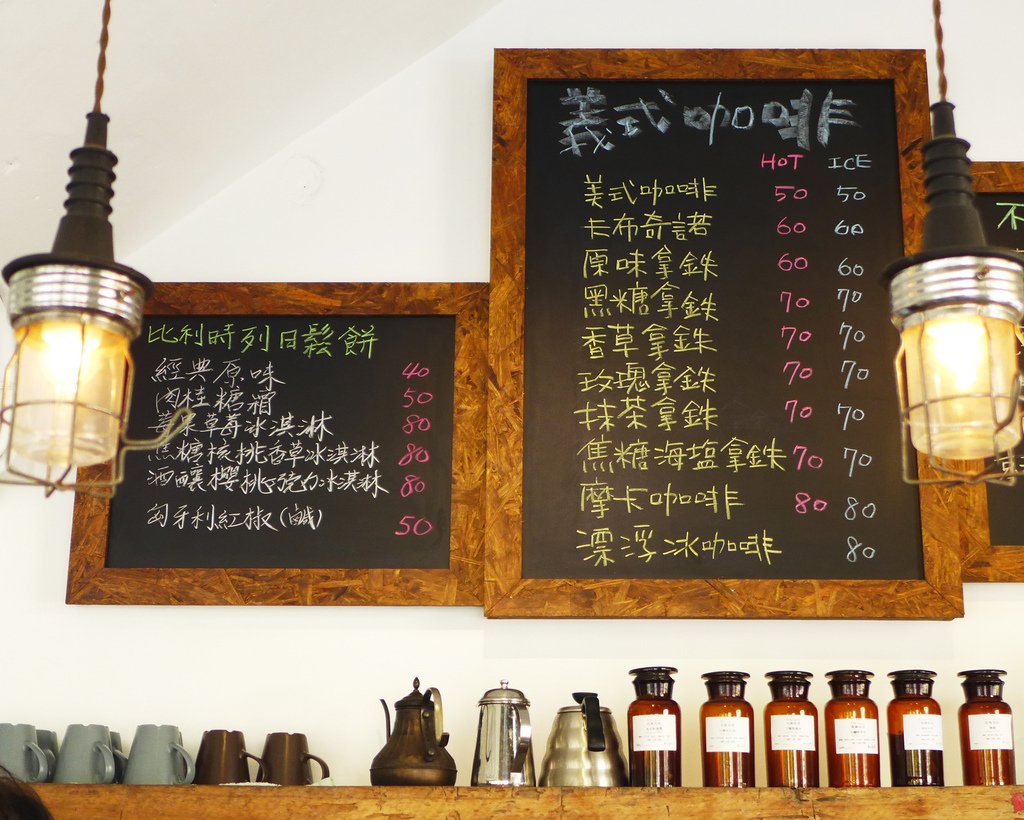 比利時列日鬆餅
經典原味 40
肉桂糖霜 50
草莓冰淇淋 80
焦糖核桃香草冰淇淋 80
酒釀櫻桃巧克力冰淇淋 80
匈牙利紅椒(鹹) 50
義式咖啡
HOT ICE
美式咖啡 50 50
卡布奇諾 60 60
原味拿鐵 60 60
黑糖拿鐵 70 70
香草拿鐵 70 70
玫瑰拿鐵 70 70
抹茶拿鐵 70 70
焦糖海塩拿鐵 70 70
摩卡咖啡 80 80
漂浮冰咖啡 80
不